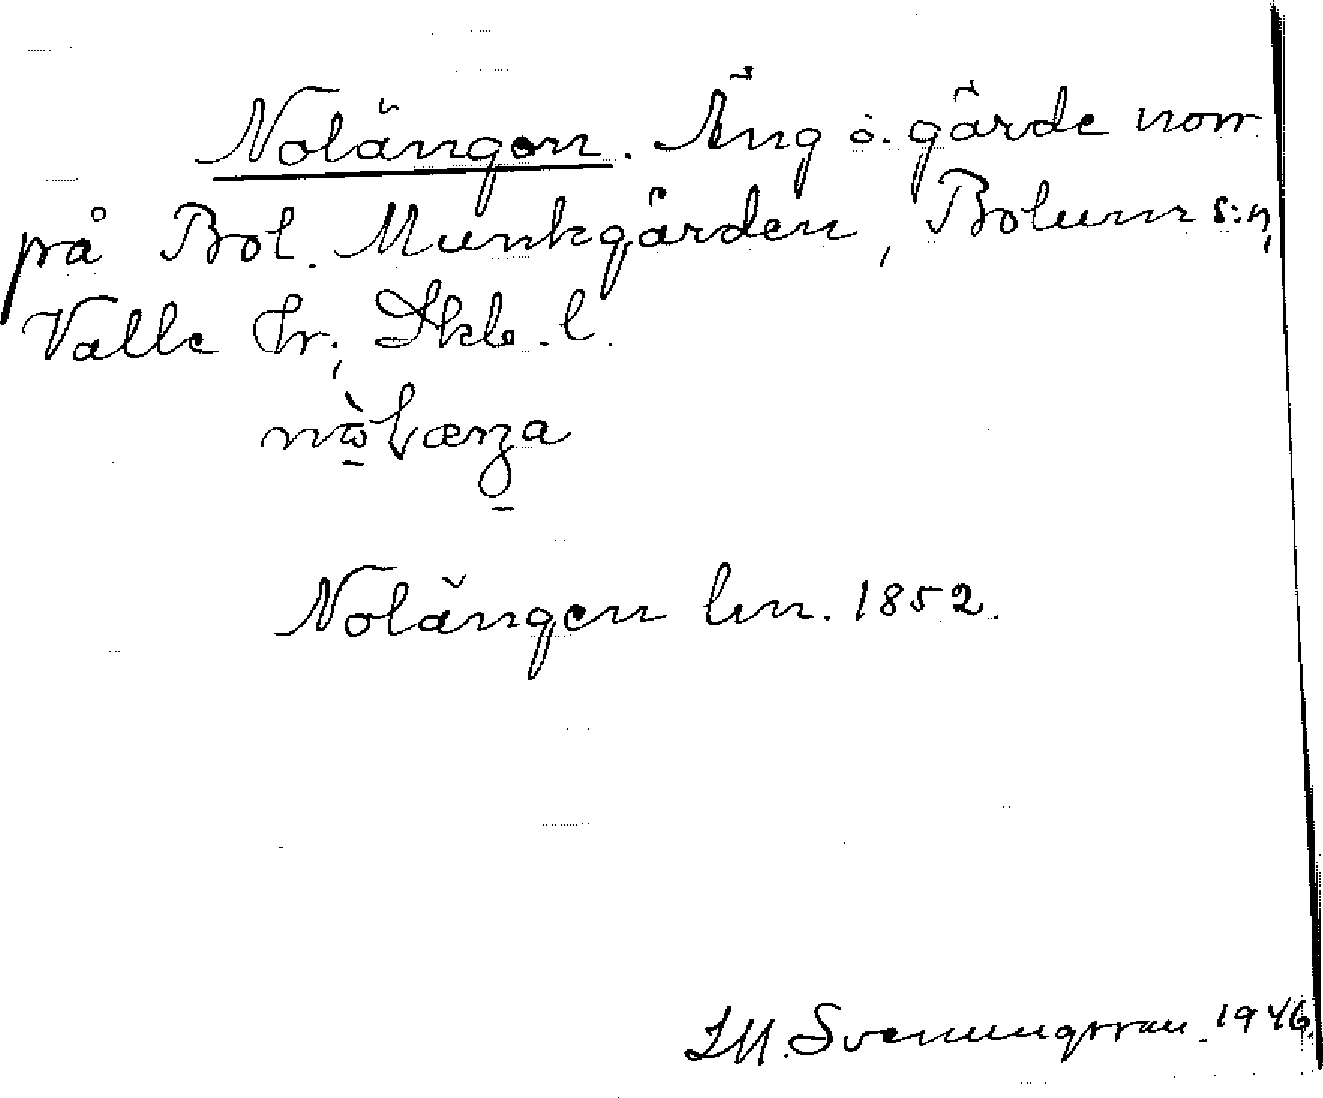 Nolängen. Äng o. gärde norr
på Bol. Munkgården, Bolum s:n,
Valle hr; Skb. l.
Nolängen lm. 1852.
J.M. Svenungsson 1946.